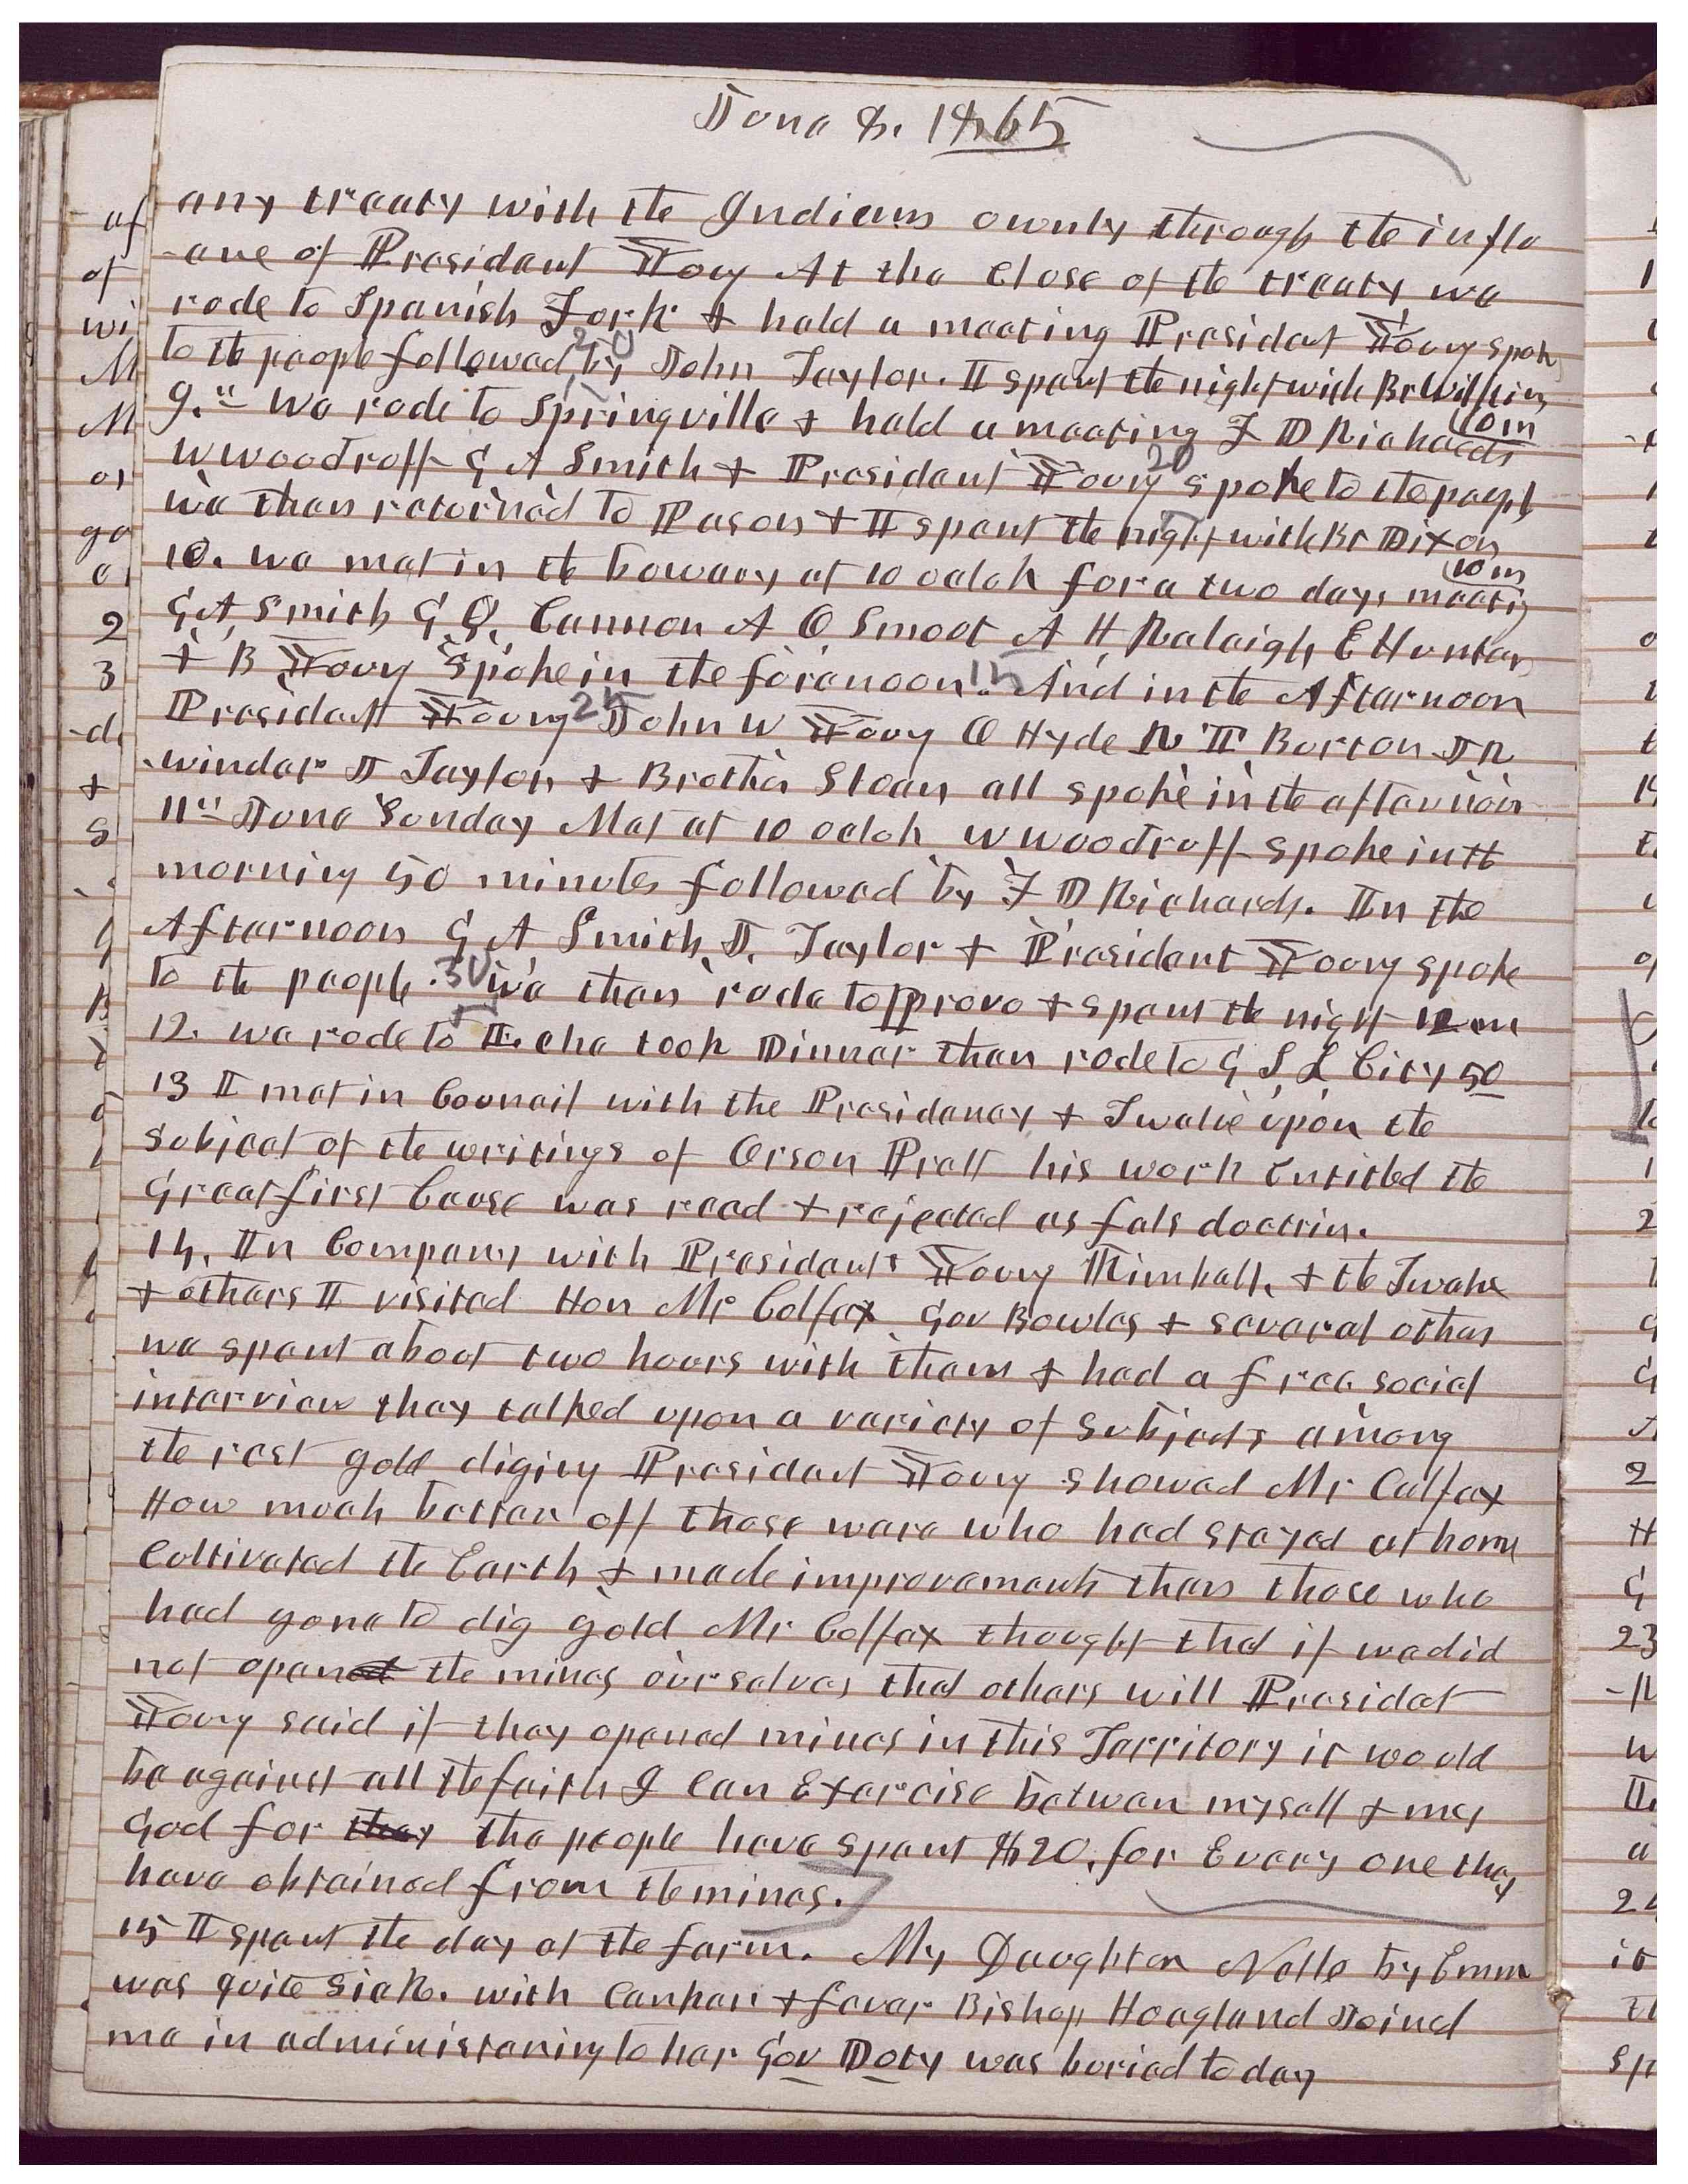 June 8. 1865
any treaty with the Indians ownly through the influ
-ance of President Young At the Close of the treaty we
rode to Spanish Fork & held a meeting President Young spok
to the people followed by John Taylor. I spent the night with Br William
20
9.th We rode to Springville & held a meeting F D Richards
10 m
W Woodruff G A Smith & President Young spoke to the peopl
20
we then returned to Pason & I spent the night with Br Dixon
10. we met in the bowery at 10 oclok for a two days meetig
10 m
G A Smith G Q. Cannon A O Smoot A H Raleigh E Hunter
& B Young Spoke in the forenoon. And in the Afternoon
15
President Young John W Young O Hyde R T Burton J R
25
winder J Taylor & Brother Sloan all spoke in the afternoon
11th June Sunday Met at 10 oclok W Woodruff spoke in the
morning 50 minutes followed by F D Richards. In the
Afternoon G A Smith J. Taylor & President Young spoke
to the people. we then rode to provo & spent the night 12 m
30
12. we rode to Lehi took Dinner then rode to G S L City 50
13 I met in Council with the Presidency & Twelve upon the
subject of the writings of Orson Pratt his work Entitled the
Great first Cause was read & rejected as fals doctrin.
14. In Company with Presidents Young Kimball, & the Twelve
& others I visited Hon Mr Colfax Gov Bowles & several others
we spent about two hours with them & had a free social
interview they talked upon a variety of subjects among
the rest gold diging President Young showed Mr Colfax
How much better off those were who had stayed at home
Cultivated the Earth & made improvements than those who
had gone to dig gold Mr Colfax thought that if we did
not opened the mines ourselves that others will Presidet
Young said if they opened mines in this Territory it would
be against all the faith I Can Exercise between myself & my
God for they the people have spent $20. for Every one they
have obtained from the mines.
15 I spent the day at the farm. My Daughter Nelle by Emm
was quite Sick. with Canker & fever Bishop Hoagland Joined
me in administering to her Gov Doty was buried to day